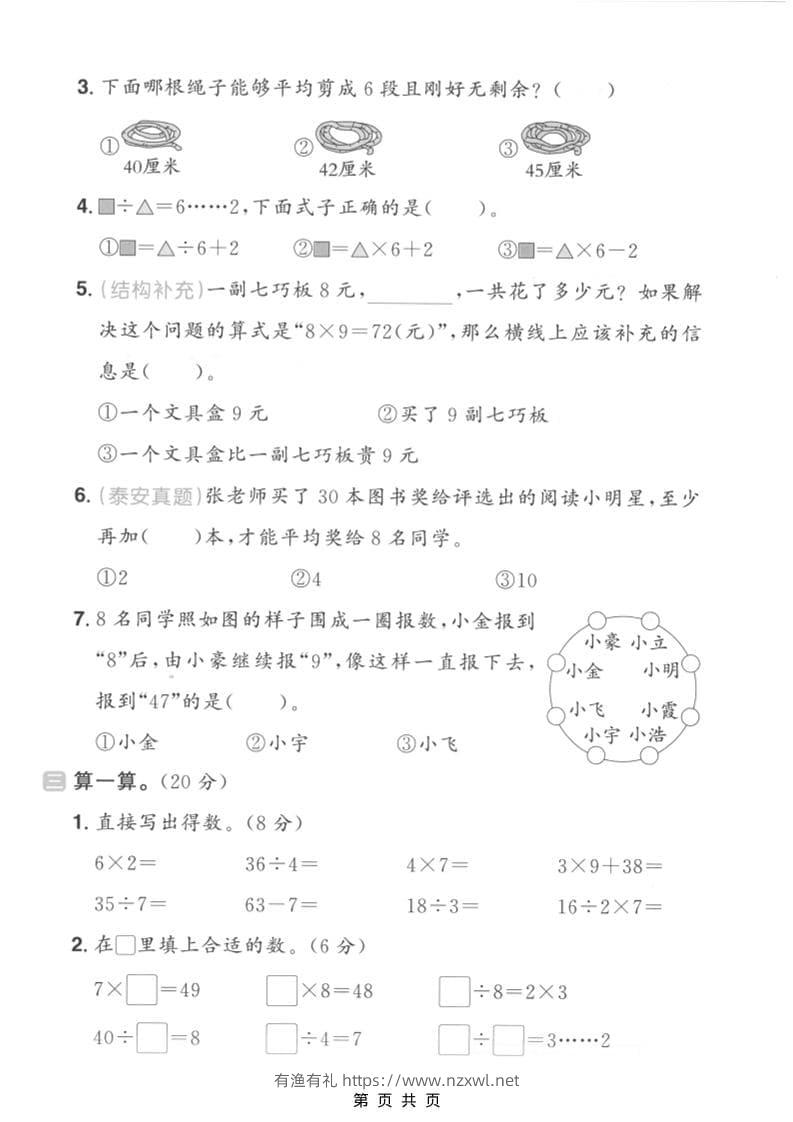 3. 下面哪根绳子能够平均剪成 6 段且刚好无剩余？（　　）
① ② ③
40厘米 42厘米 45厘米
4. ■÷△=6……2，下面式子正确的是（　　）。
①■=△÷6+2 ②■=△×6+2 ③■=△×6-2
5. (结构补充)一副七巧板 8 元，________，一共花了多少元？如果解
决这个问题的算式是“8×9=72(元)”，那么横线上应该补充的信
息是（　　）。
①一个文具盒 9 元 ②买了 9 副七巧板
③一个文具盒比一副七巧板贵 9 元
6. (泰安真题)张老师买了 30 本图书奖给评选出的阅读小明星，至少
再加（　　）本，才能平均奖给 8 名同学。
①2 ②4 ③10
7. 8 名同学照如图的样子围成一圈报数，小金报到
“8”后，由小豪继续报“9”，像这样一直报下去，
报到“47”的是（　　）。
①小金 ②小宇 ③小飞
小豪 小立
小金 小明
小飞 小霞
小宇 小浩
三 算一算。(20 分)
1. 直接写出得数。(8 分)
6×2= 36÷4= 4×7= 3×9+38=
35÷7= 63-7= 18÷3= 16÷2×7=
2. 在□里填上合适的数。(6 分)
7×□=49 □×8=48 □÷8=2×3
40÷□=8 □÷4=7 □÷□=3……2
有渔有礼 https://www.nzxwl.net
第 页 共 页